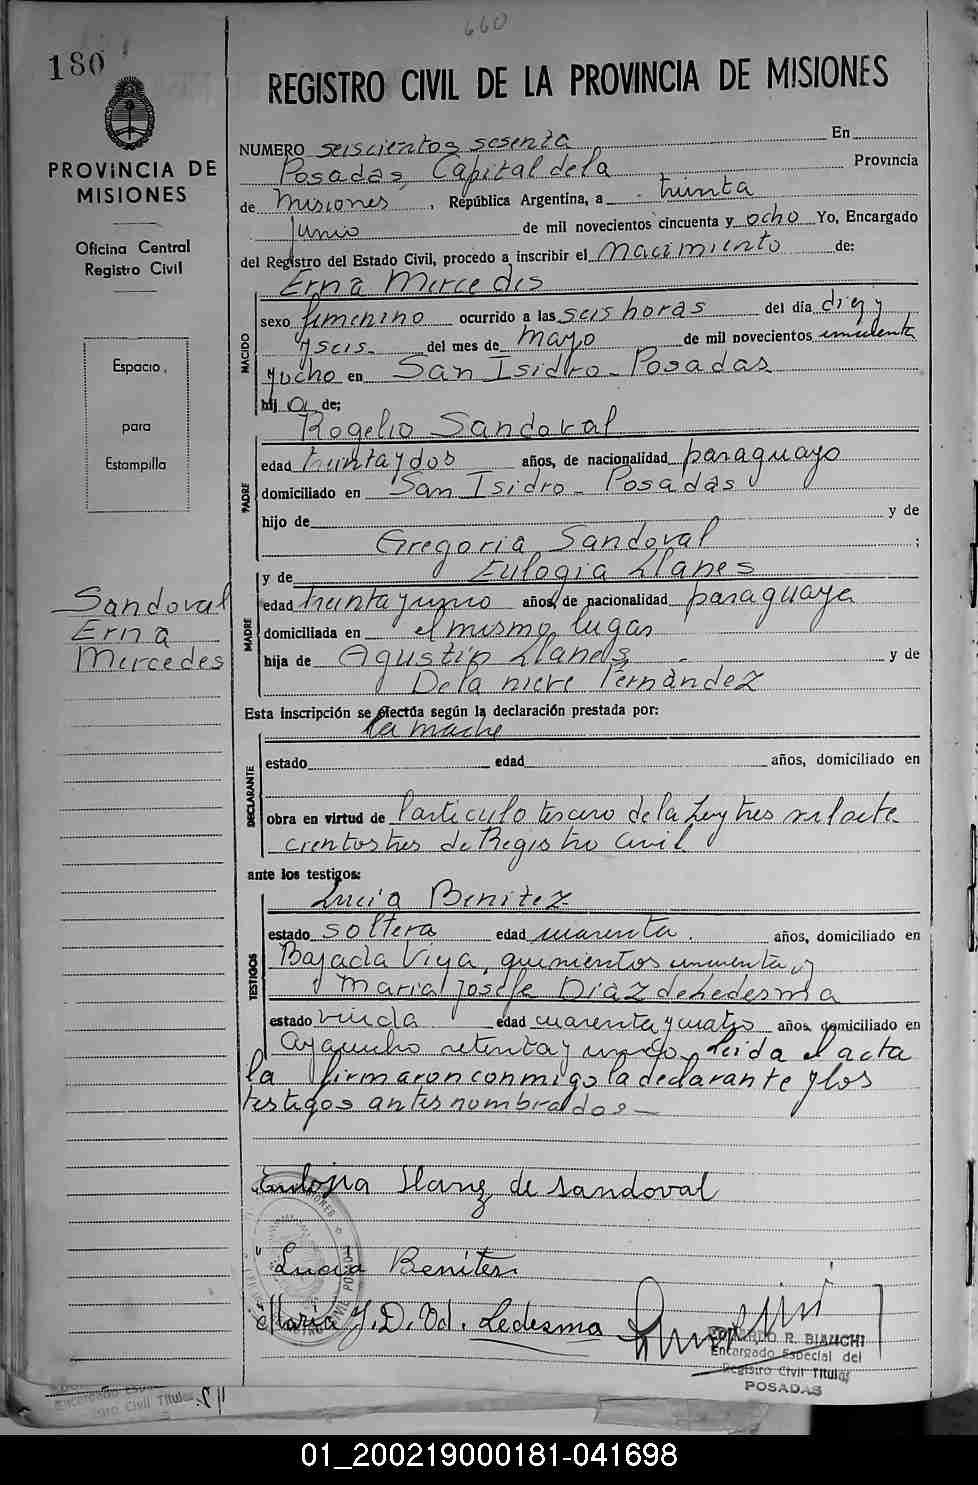 660
180
PROVINCIA DE
MISIONES
Oficina Central
Registro Civil
Espacio
para
Estampilla
Sandoval
Erna
Mercedes
REGISTRO CIVIL DE LA PROVINCIA DE MISIONES
NUMERO seiscientos sesenta En
Posadas, Capital de la Provincia
de Misiones, República Argentina, a treinta
Junio de mil novecientos cincuenta y ocho Yo, Encargado
del Registro del Estado Civil, procedo a inscribir el Nacimiento de:
Erna Mercedes
NACIDO
sexo femenino ocurrido a las seis horas del día diez y
y seis del mes de Mayo de mil novecientos cincuenta
y ocho en San Isidro - Posadas
hij a de;
Rogelio Sandoval
PADRE
edad treinta y dos años, de nacionalidad paraguayo
domiciliado en San Isidro - Posadas
hijo de y de
Gregoria Sandoval ;
y de Eulogia Llanes
MADRE
edad treinta y uno años, de nacionalidad paraguaya
domiciliada en el mismo lugar
hija de Agustin Llanes y de
De la nieve Fernández
Esta inscripción se efectúa según la declaración prestada por:
la madre
DECLARANTE
estado edad años, domiciliado en
obra en virtud de l'articulo tercero de la Ley tres mil siete
cientos tres de Registro Civil
ante los testigos:
Lucia Benitez
TESTIGOS
estado soltera edad cuarenta años, domiciliado en
Bajada Vieja, quinientos cincuenta y
Maria Josefa Diaz de Ledesma
estado viuda edad cuarenta y cuatro años, domiciliado en
Ayacucho setenta y Leida el acta
la firmaron conmigo la declarante y los
testigos antes nombrados -
Eulojia Llanez de Sandoval
Lucia Benites
Maria J. D. Vd. Ledesma
R. BIANCHI
Encargado Especial del
Registro Civil Titular
POSADAS
01_200219000181-041698